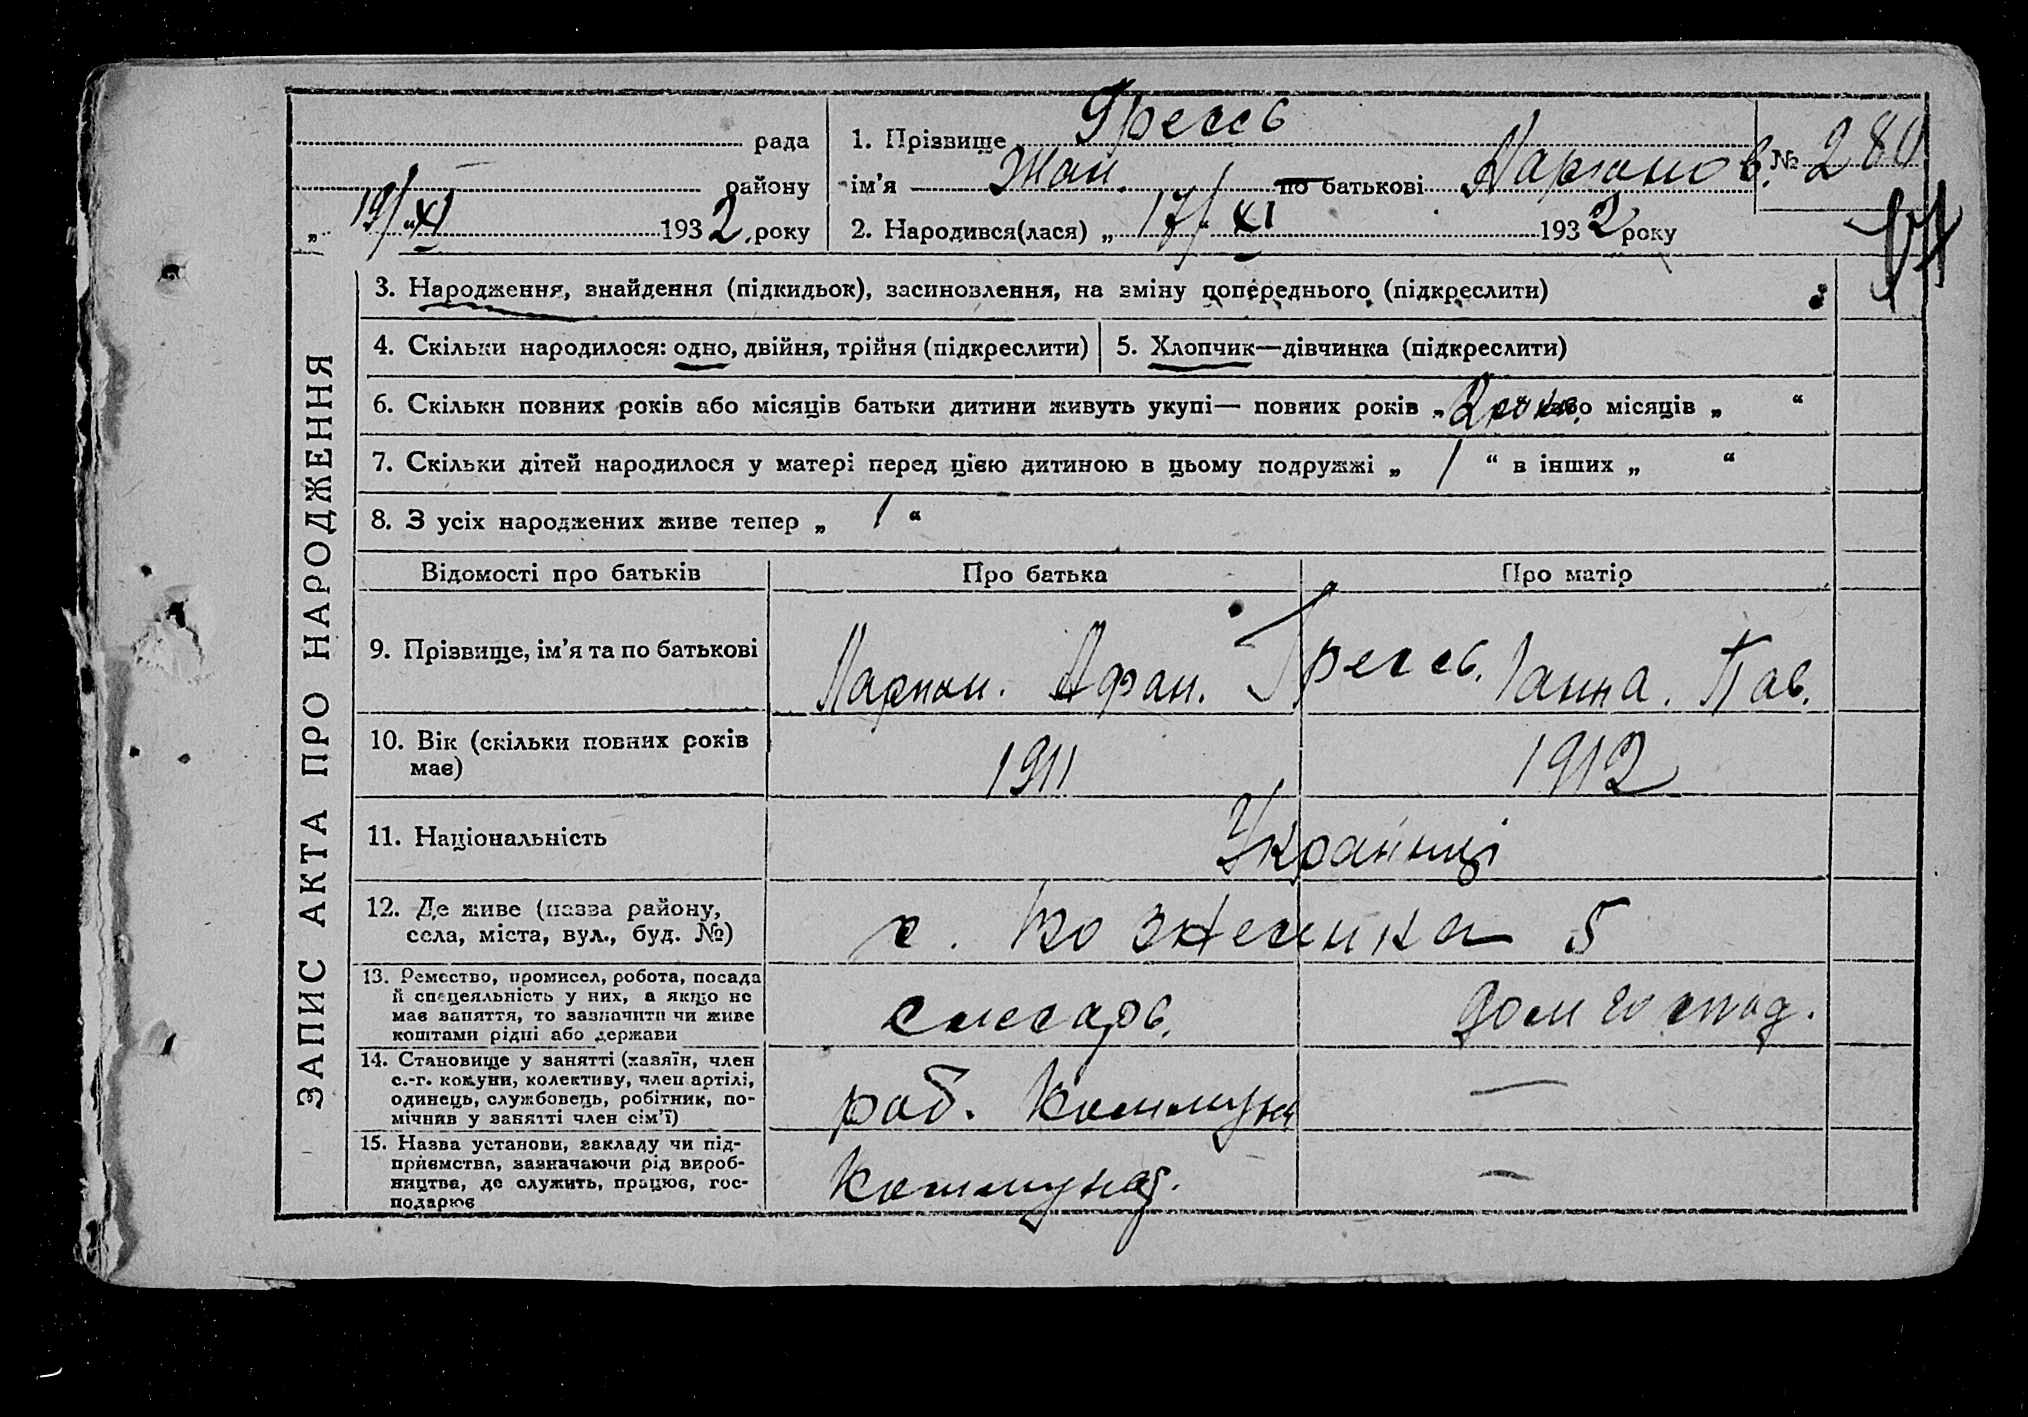 рада
району
19/XI 1932 року
1. Прізвище Гресь
ім'я Жан. по батькові Ларионов.
№ 280
2. Народився(лася) „ 17/XI 1932 року
ЗАПИС АКТА ПРО НАРОДЖЕННЯ
3. Народження, знайдення (підкидьок), засиновлення, на зміну попереднього (підкреслити)
4. Скільки народилося: одно, двійня, трійня (підкреслити)
5. Хлопчик—дівчинка (підкреслити)
6. Скільки повних років або місяців батьки дитини живуть укупі— повних років „ 2 роки або місяців „ “
7. Скільки дітей народилося у матері перед цією дитиною в цьому подружжі „ 1 “ в інших „ “
8. З усіх народжених живе тепер „ 1 “
Відомості про батьків Про батька Про матір
9. Прізвище, ім'я та по батькові
Гресь.
Ларион. Афан. Ганна. Пав.
10. Вік (скільки повних років
має)
1911 1912
11. Національність
Українці
12. Де живе (назва району,
села, міста, вул., буд. №)
с. Вознесенка 5
13. Ремество, промисел, робота, посада
й спецеяльність у них, а якщо не
має заняття, то зазначити чи живе
коштами рідні або держави
слесарь. дом господ.
14. Становище у занятті (хазяїн, член
с.-г. комуни, колективу, член артілі,
одинець, службовець, робітник, по-
мічник у занятті член сім'ї)
раб. Коммуны —
15. Назва установи, закладу чи під-
приємства, зазначаючи рід вироб-
ництва, де служить, працює, гос-
подарює
—